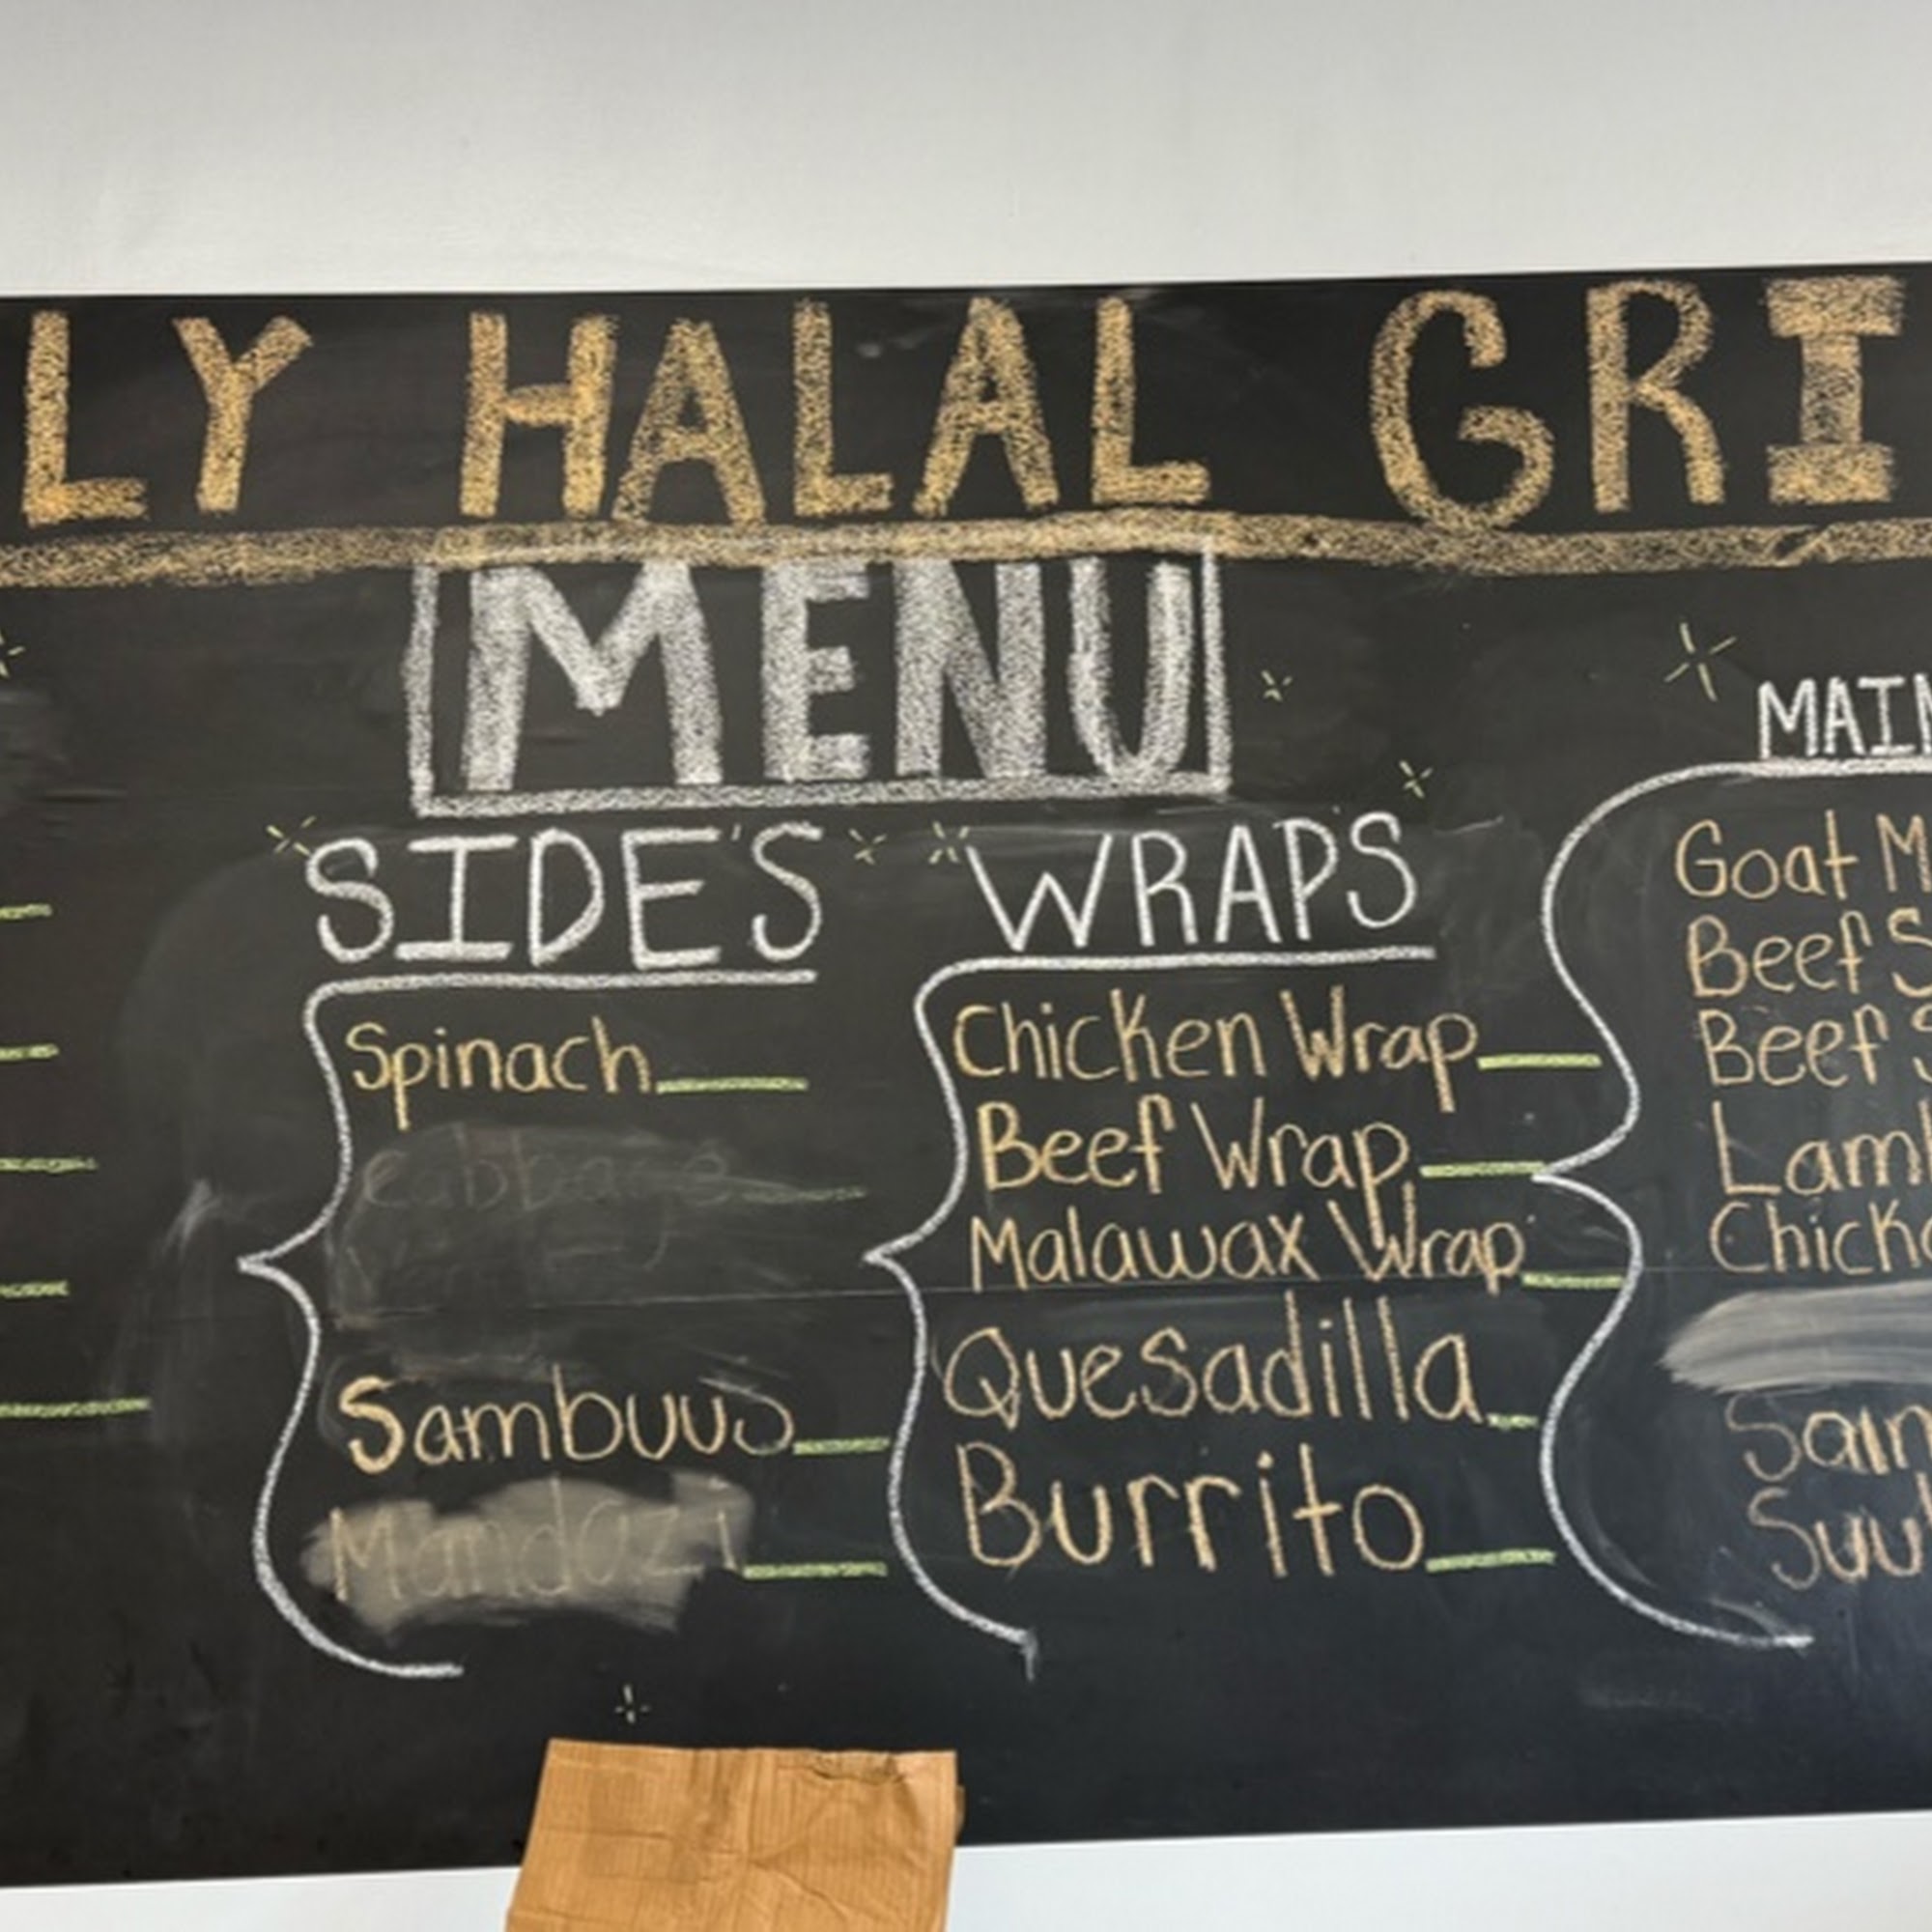 LY HALAL GRI
MENU
SIDE'S
Spinach
Cabbage
Sambuus
Mandazi
WRAPS
Chicken Wrap
Beef Wrap
Malawax Wrap
Quesadilla
Burrito
MAIN
Goat M
Beef S
Beef S
Lamb
Chicke
Sam
Suu